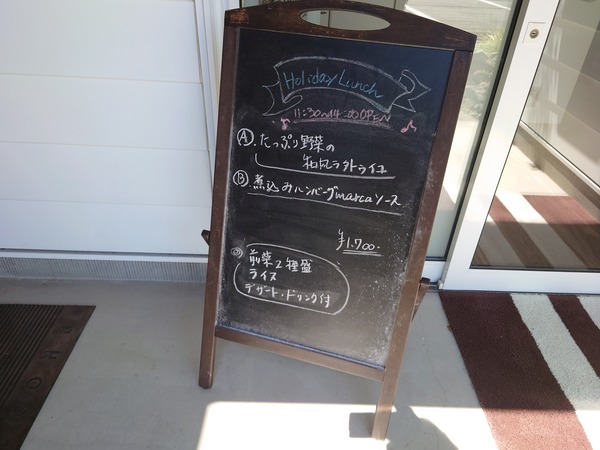 Holiday Lunch
11:30〜14:00 OPEN
Ⓐ. たっぷり野菜の
和風ラタトゥイユ
Ⓑ. 煮込みハンバーグmarcaソース
¥1,700-
前菜2種盛
ライス
デザート・ドリンク付